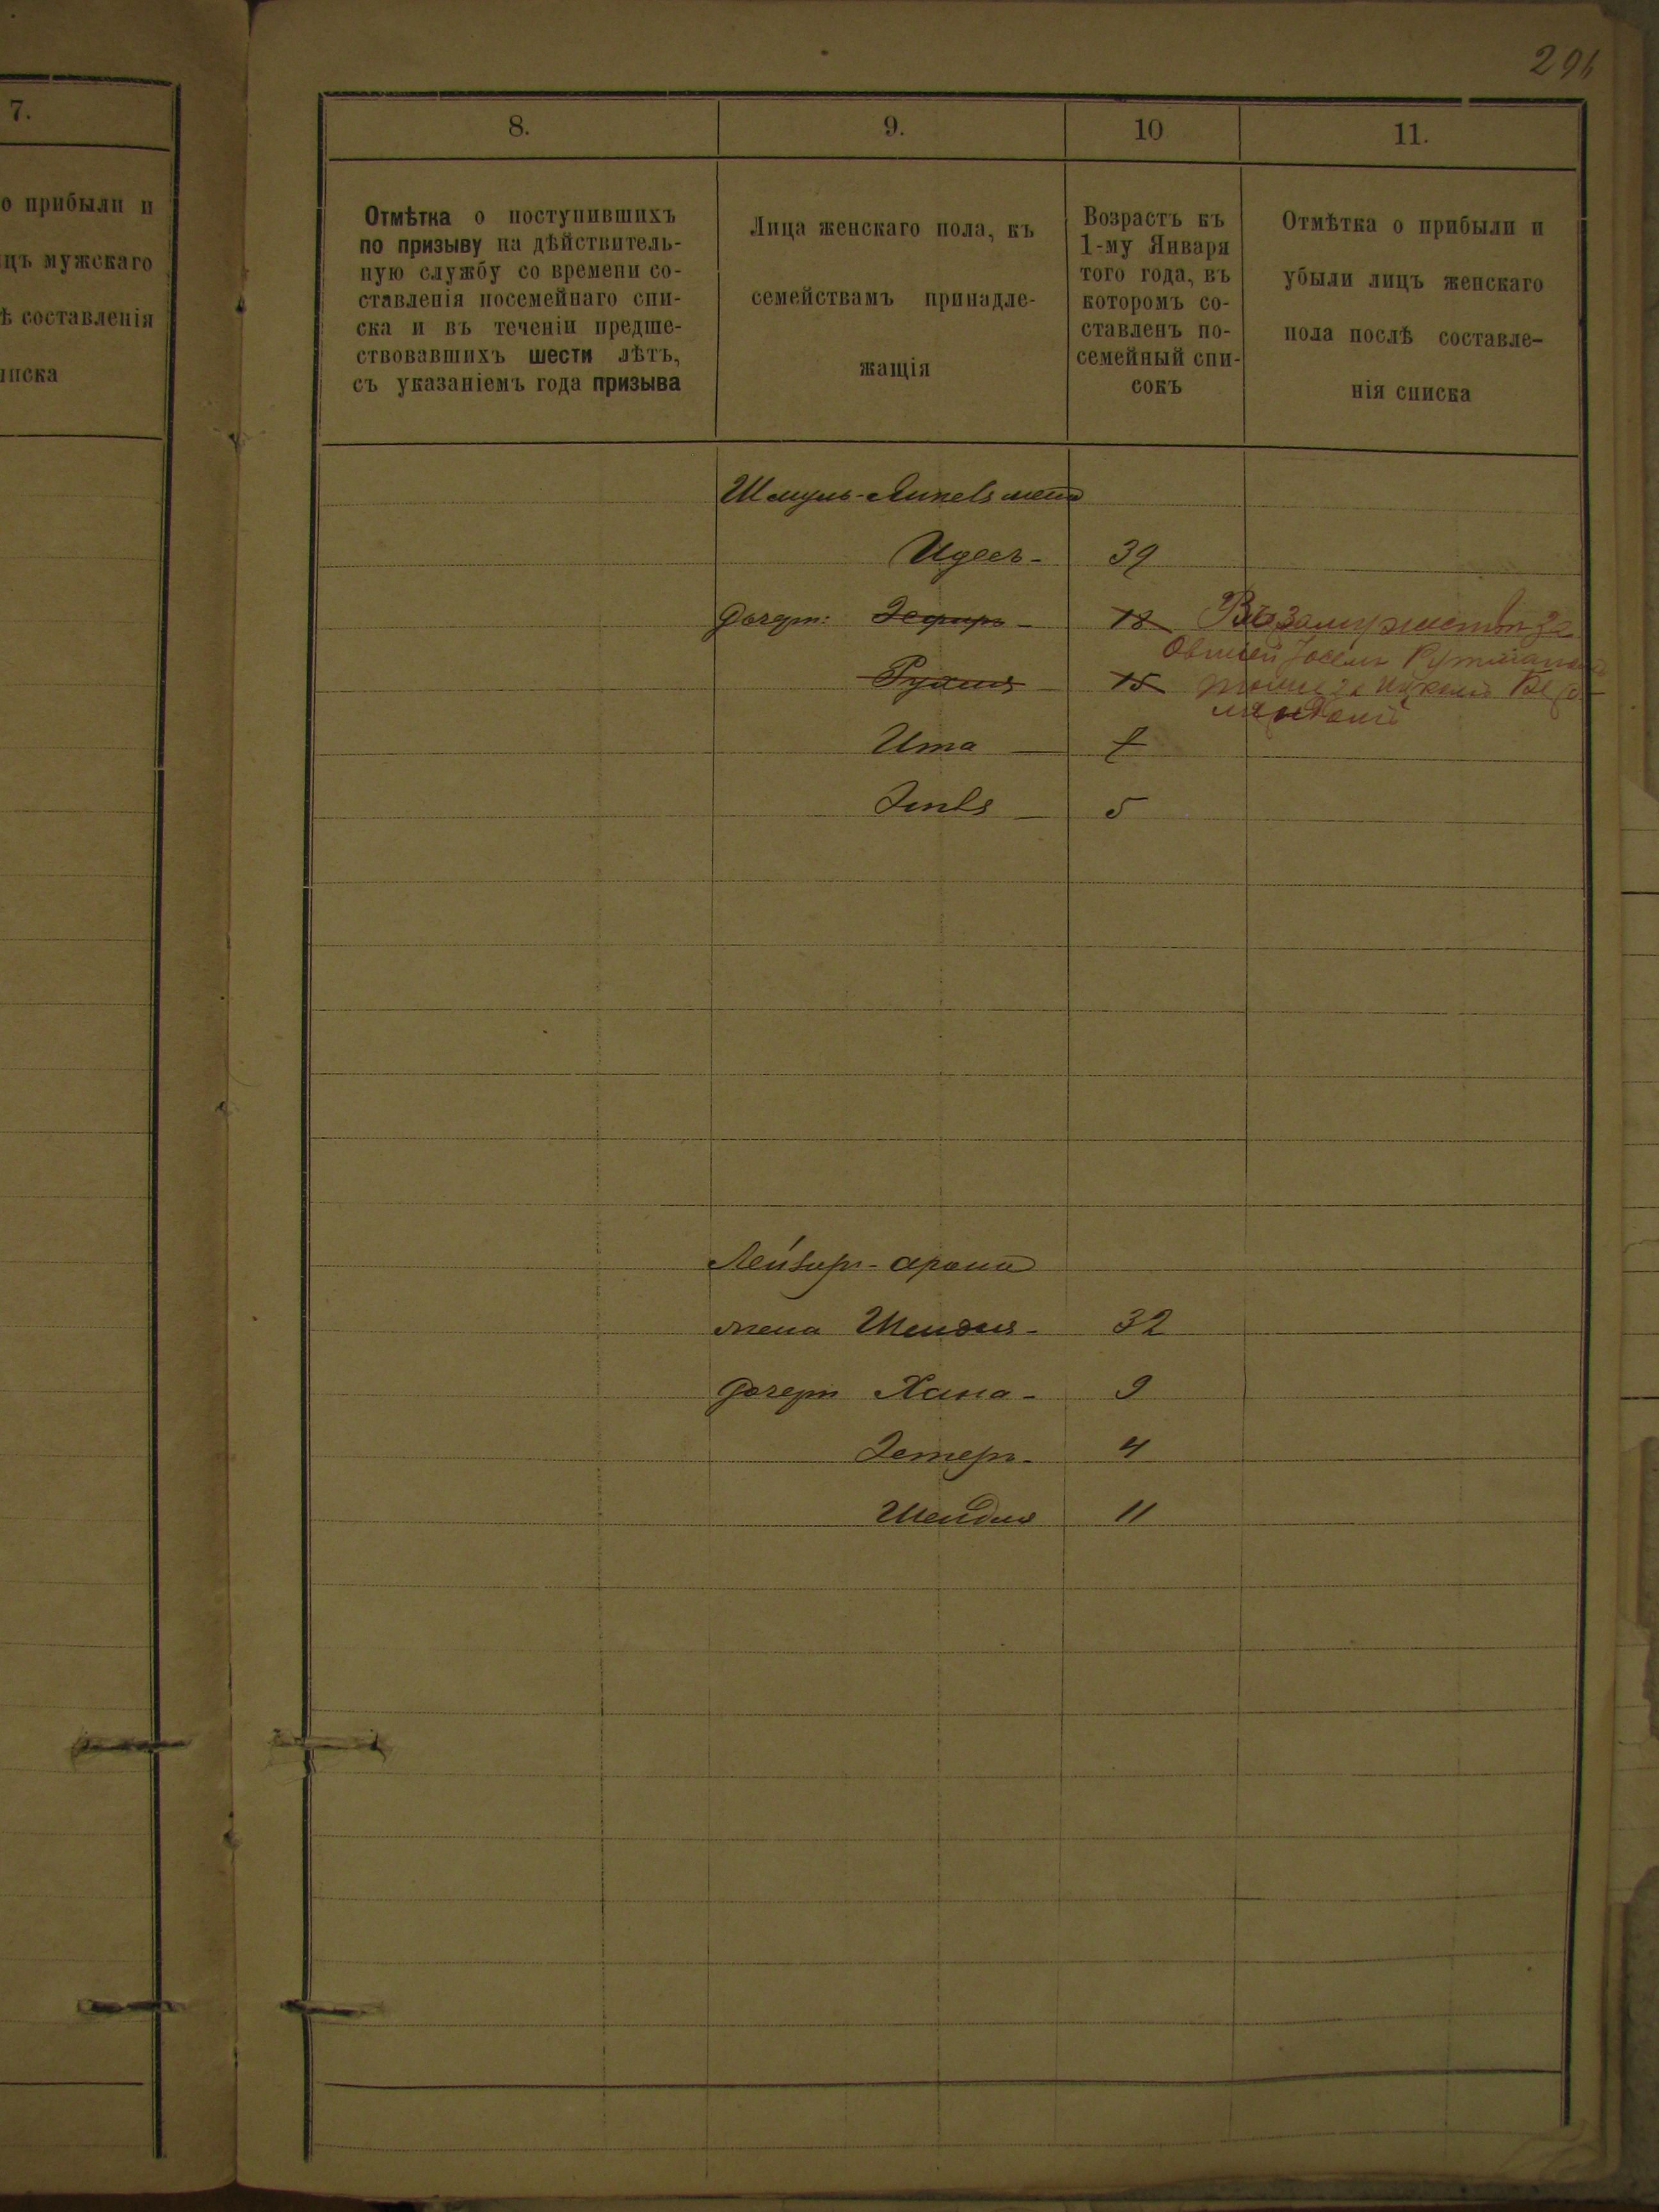 291
7.
о прибыли и
цъ мужскаго
ѣ составленія
писка
8.
9.
10
11.
Отмѣтка о поступившихъ
по призыву на дѣйствитель-
ную службу со времени со-
ставленія посемейнаго спи-
ска и въ теченіи предше-
ствовавшихъ шести лѣтъ,
съ указаніемъ года призыва
Лица женскаго пола, къ
семействамъ принадле-
жащія
Возрастъ къ
1-му Января
того года, въ
которомъ со-
ставленъ по-
семейный спи-
сокъ
Отмѣтка о прибыли и
убыли лицъ женскаго
пола послѣ составле-
нія списка
Шмуль-Янкеля жена
Идесъ - 39
Дочери: 18 Въ замужествѣ за
15
Ита
5
Лейзеръ-Арона
жена Шендля - 32
Дочери Хана - 9
Эстеръ - 4
Шендля 11